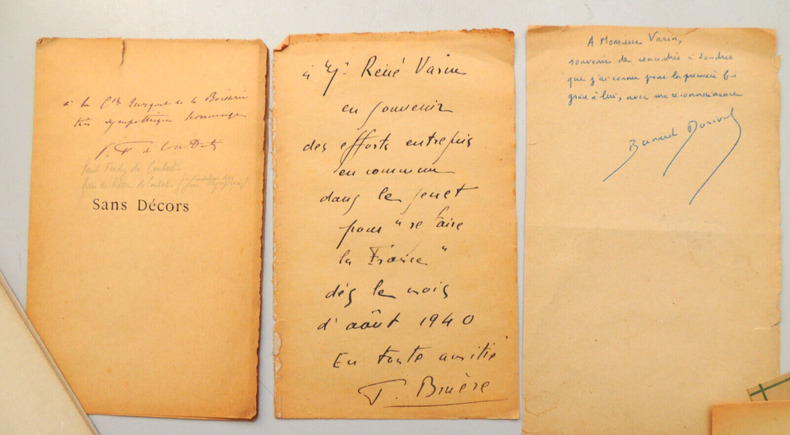 à la Ctesse
très sympathique hommage
Sans Décors
à Mr. René Varin
en souvenir
des efforts entrepris
en commun
dans le
pour "refaire
la France"
dès le mois
d'août 1940
En toute amitié
A Monsieur Varin,
souvenir de rencontres à Londres
que j'ai connu pour la première fois
grâce à lui, avec ma reconnaissance
Bernard Dorival